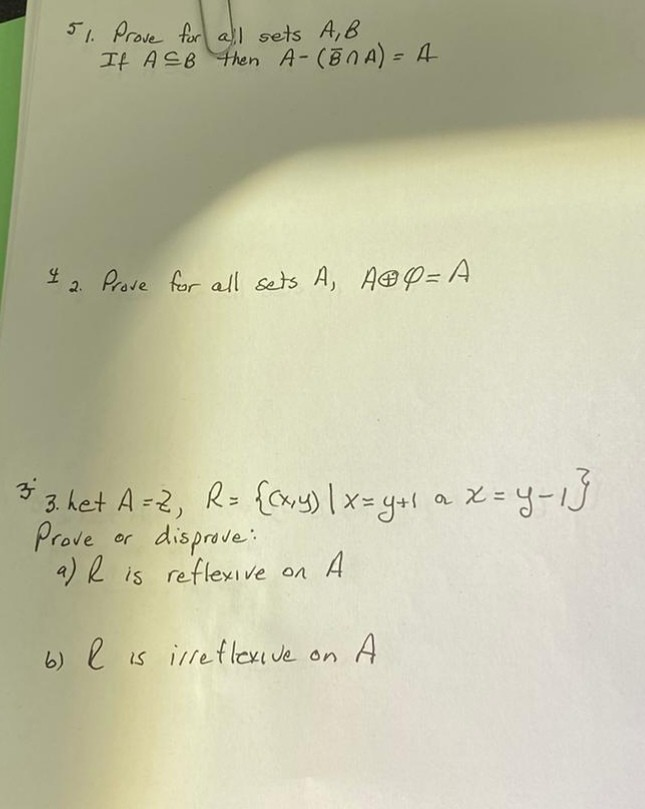 5 1. Prove for all sets A, B
If A ⊆ B then A - (B̅ ∩ A) = A
4 2. Prove for all sets A, A ⊕ φ = A
3 3. Let A = Z, R = {(x,y) | x = y+1 or x = y-1}
Prove or disprove:
a) R is reflexive on A
b) R is irreflexive on A